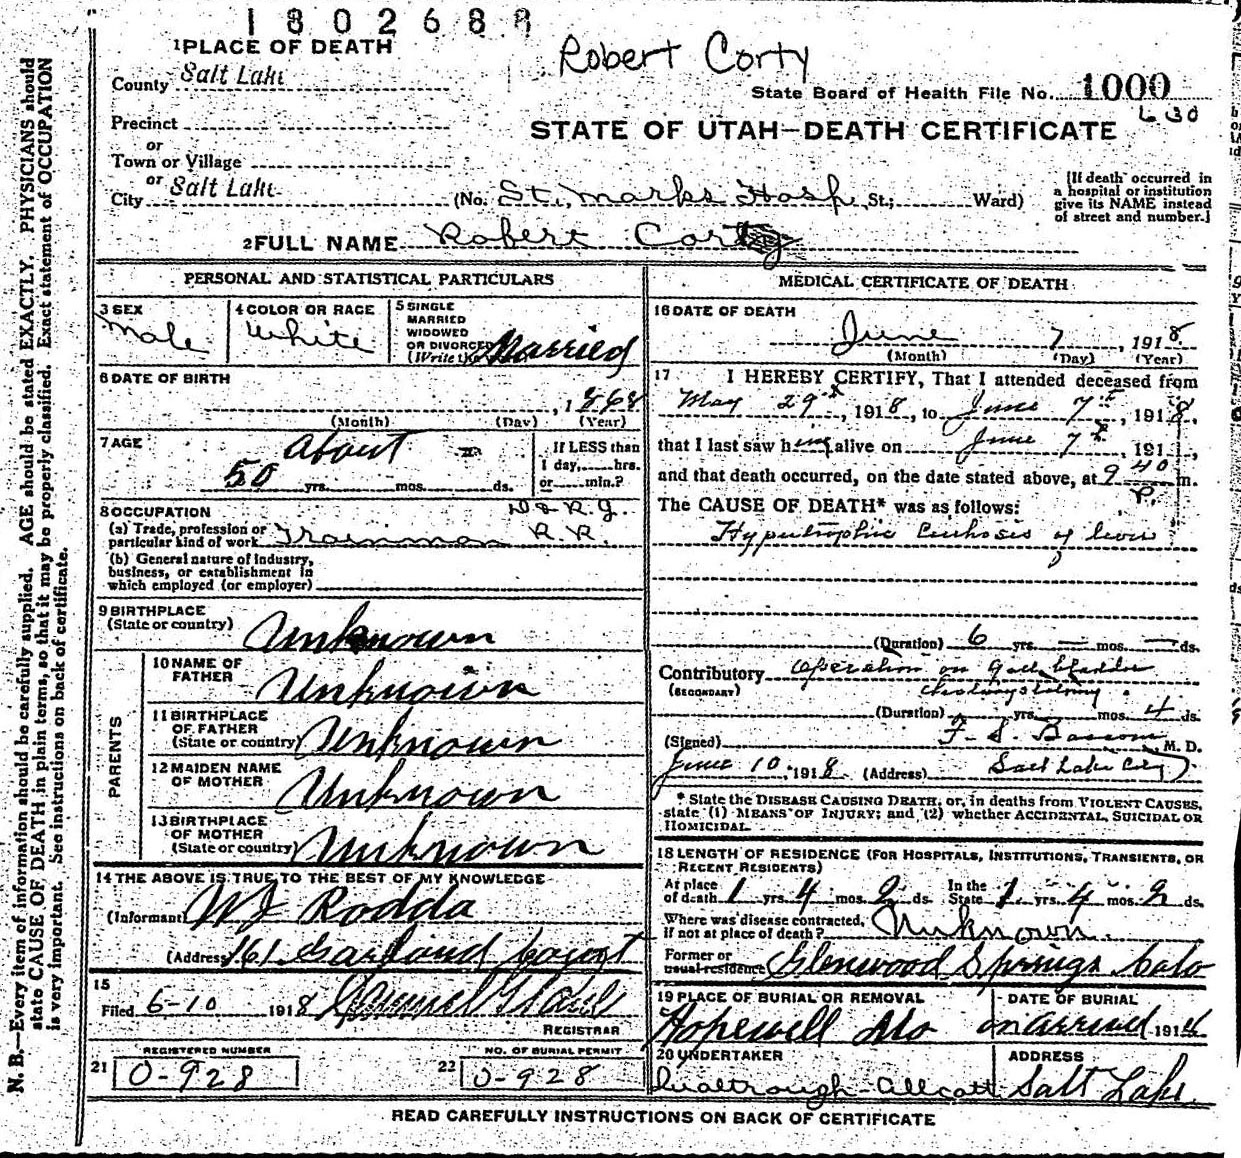 1802688
Robert Corty
1 PLACE OF DEATH
County Salt Lake
State Board of Health File No. 1000
630
Precinct
or
Town or Village
or
STATE OF UTAH—DEATH CERTIFICATE
City Salt Lake (No. St. Marks Hosp. St.; Ward)
[If death occurred in
a hospital or institution
give its NAME instead
of street and number.]
2 FULL NAME Robert Corty
PERSONAL AND STATISTICAL PARTICULARS
3 SEX
Male
4 COLOR OR RACE
White
5 SINGLE
MARRIED
WIDOWED
OR DIVORCED
(Write the
Married
6 DATE OF BIRTH
, 1868
(Month) (Day) (Year)
7 AGE
About
50 yrs. mos. ds.
If LESS than
1 day, hrs.
or min.?
8 OCCUPATION
(a) Trade, profession or
particular kind of work Trainman D & R.G. R.R.
(b) General nature of industry,
business, or establishment in
which employed (or employer)
9 BIRTHPLACE
(State or country) Unknown
PARENTS
10 NAME OF
FATHER Unknown
11 BIRTHPLACE
OF FATHER
(State or country) Unknown
12 MAIDEN NAME
OF MOTHER Unknown
13 BIRTHPLACE
OF MOTHER
(State or country) Unknown
14 THE ABOVE IS TRUE TO THE BEST OF MY KNOWLEDGE
(Informant) W J Rodda
(Address) 161 Garland
15
Filed 6-10 1918
REGISTRAR
REGISTERED NUMBER
21 0-928
NO. OF BURIAL PERMIT
22 0-928
MEDICAL CERTIFICATE OF DEATH
16 DATE OF DEATH
June 7, 1918.
(Month) (Day) (Year)
17 I HEREBY CERTIFY, That I attended deceased from
May 29th, 1918, to June 7th, 1918,
that I last saw him alive on June 7th, 191 ,
and that death occurred, on the date stated above, at 9 40 P. m.
The CAUSE OF DEATH* was as follows:
Hypertrophic Cirrhosis of liver
(Duration) 6 yrs. — mos. — ds.
Contributory Operation on gall bladder
(SECONDARY)
(Duration) yrs. mos. 4 ds.
(Signed) F. S. Bascom M. D.
June 10, 1918. (Address) Salt Lake City
* State the DISEASE CAUSING DEATH, or, in deaths from VIOLENT CAUSES,
state (1) MEANS OF INJURY; and (2) whether ACCIDENTAL, SUICIDAL OR
HOMICIDAL.
18 LENGTH OF RESIDENCE (FOR HOSPITALS, INSTITUTIONS, TRANSIENTS, OR
RECENT RESIDENTS)
At place
of death 1 yrs. 4 mos. 2 ds. In the
State 1 yrs. 4 mos. 2 ds.
Where was disease contracted,
if not at place of death? Unknown.
Former or
usual residence Glenwood Springs Colo
19 PLACE OF BURIAL OR REMOVAL
Hopewell Mo
DATE OF BURIAL
on arrival 191
20 UNDERTAKER
ADDRESS
Salt Lake.
READ CAREFULLY INSTRUCTIONS ON BACK OF CERTIFICATE
N. B.—Every item of information should be carefully supplied. AGE should be stated EXACTLY. PHYSICIANS should
state CAUSE OF DEATH in plain terms, so that it may be properly classified. Exact statement of OCCUPATION
is very important. See instructions on back of certificate.